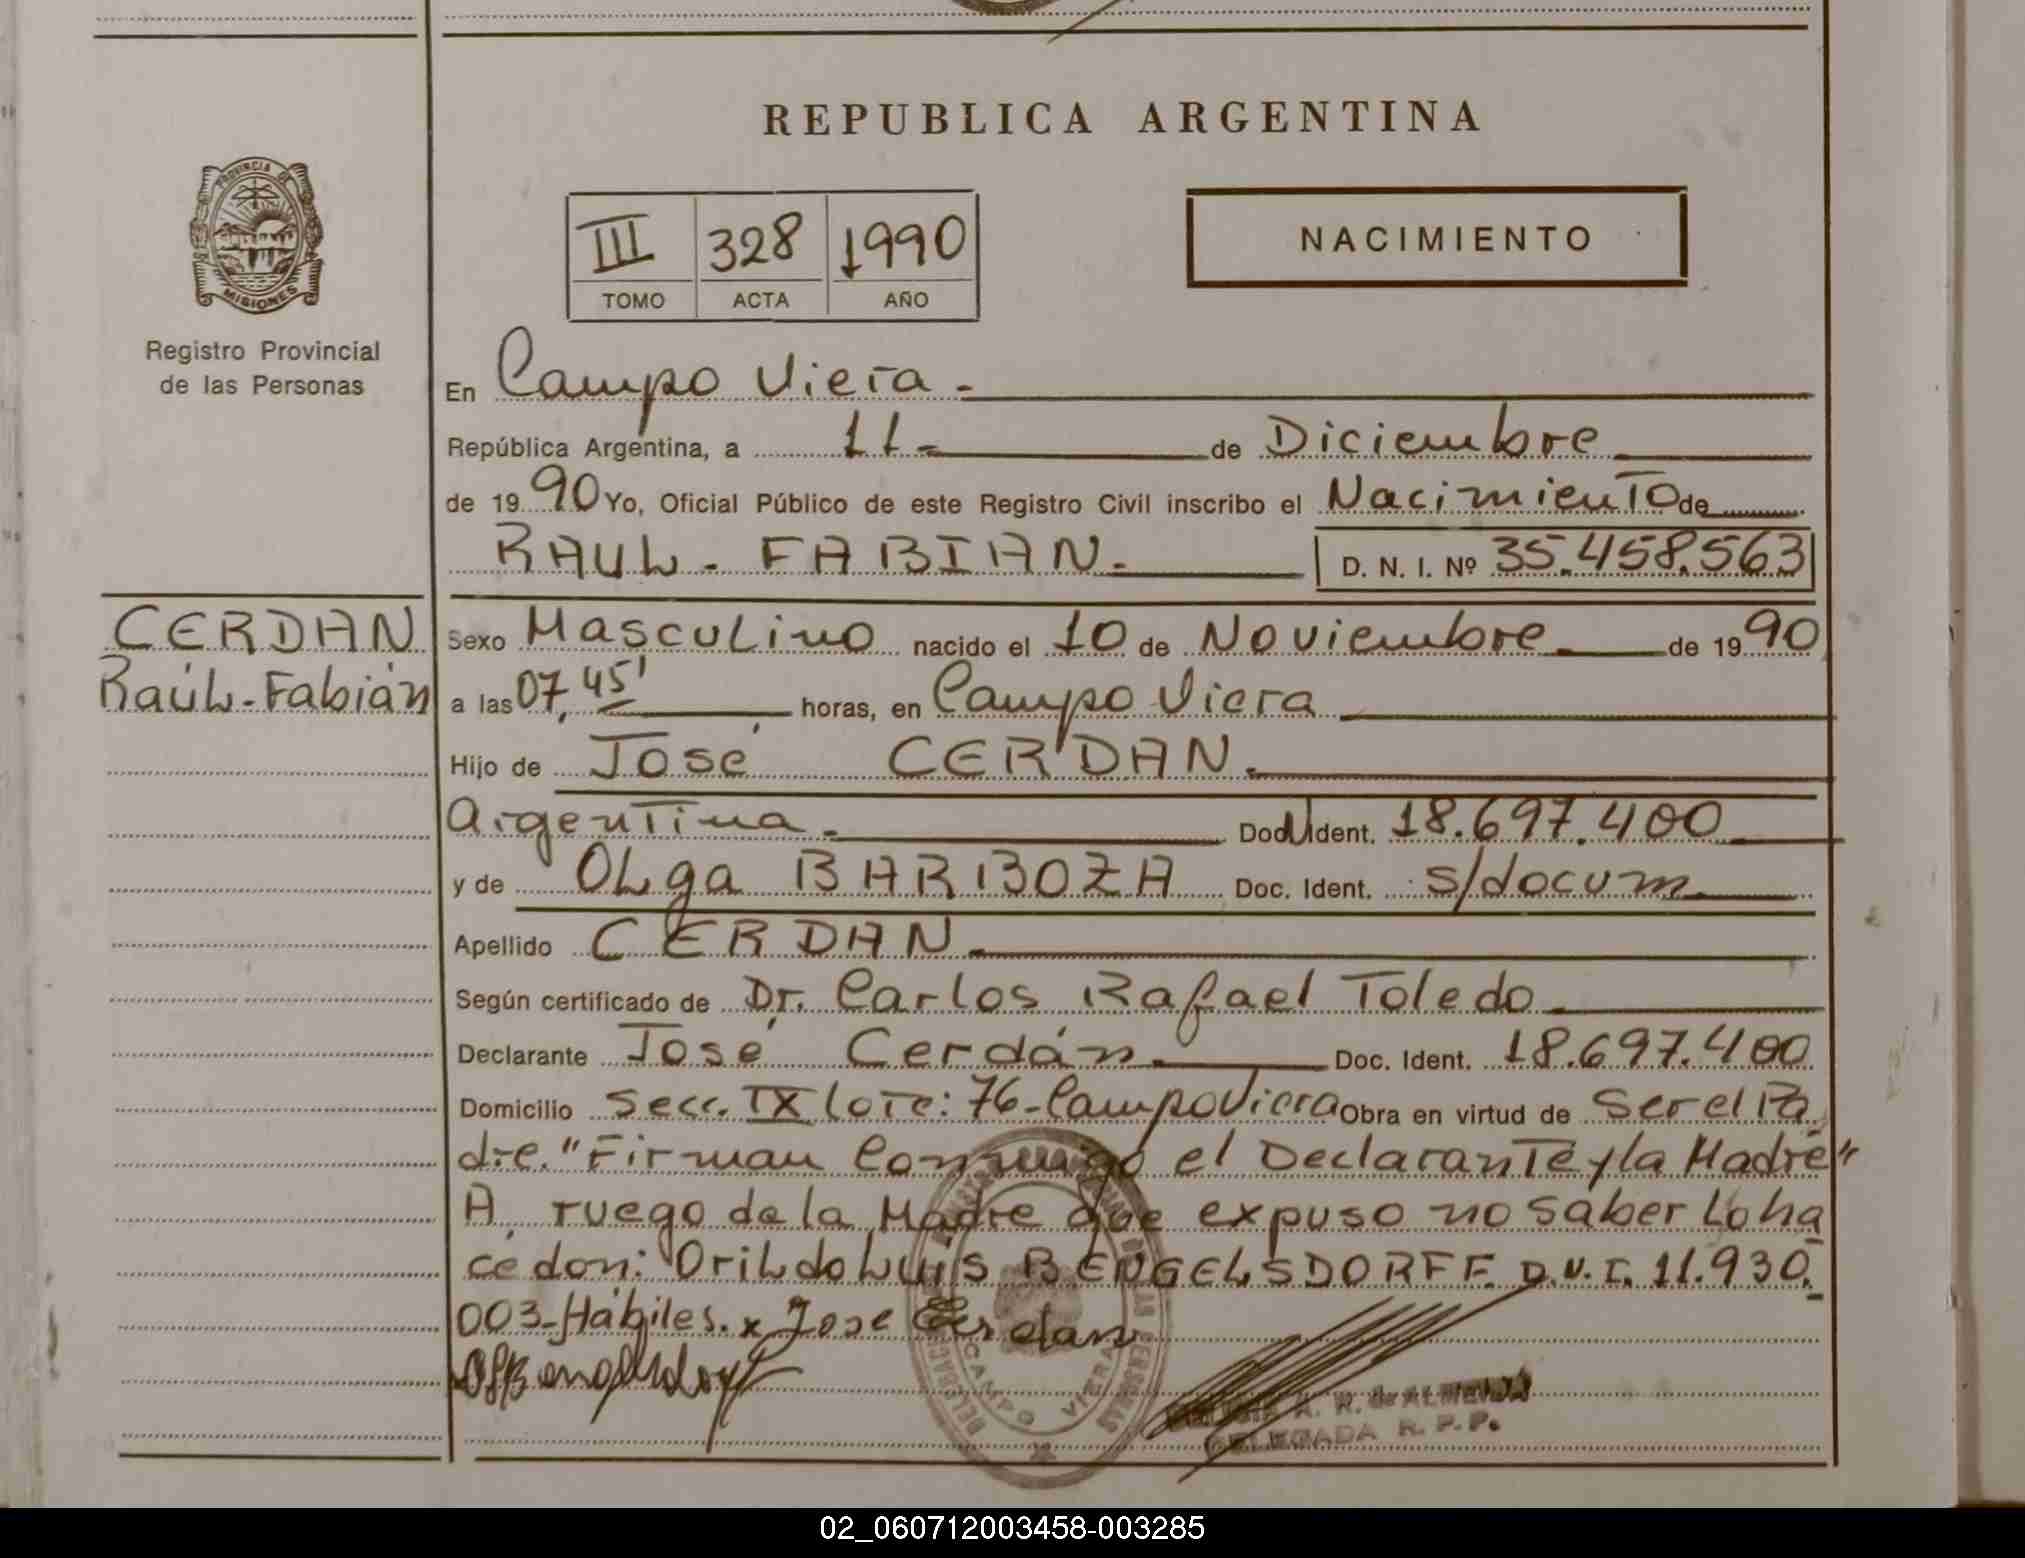 REPUBLICA ARGENTINA
PROVINCIA DE
MISIONES
Registro Provincial
de las Personas
III 328 1990
TOMO ACTA AÑO
NACIMIENTO
En Campo Viera -
República Argentina, a 11- de Diciembre
de 19 90 Yo, Oficial Público de este Registro Civil inscribo el Nacimiento de
RAUL - FABIAN - D. N. I. Nº 35.458.563
CERDAN
Raúl-Fabián
Sexo Masculino nacido el 10 de Noviembre de 19 90
a las 07,45' horas, en Campo Viera
Hijo de José CERDAN.
Argentina - Doc. Ident. 18.697.400
y de OLga BARBOZA Doc. Ident. s/docum
Apellido CERDAN
Según certificado de Dr. Carlos Rafael Toledo
Declarante José Cerdán Doc. Ident. 18.697.400
Domicilio Secc. IX lote: 76-Campo Viera Obra en virtud de Ser el Pa
dre. "Firman Conmigo el Declarante y la Madre"
A ruego de la Madre que expuso no saber Lo ha
ce don: OriLdo Luis BENGELSDORFF D.N.I. 11.930.
003-Hábiles. x Jose Cerdan
CAMPO VIERA
A. R. de ALMEIDA
DELEGADA R. P. P.
02_060712003458-003285